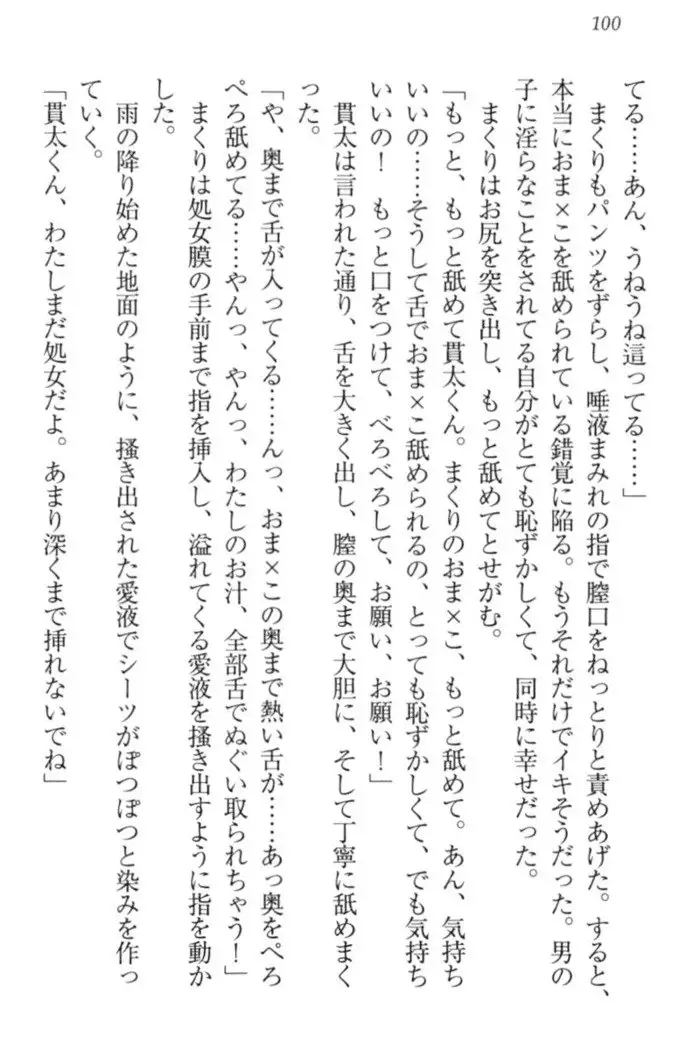 100
てる……あん、うねうね這ってる……」
まくりもパンツをずらし、唾液まみれの指で膣口をねっとりと責めあげた。すると、
本当におま×こを舐められている錯覚に陥る。もうそれだけでイキそうだった。男の
子に淫らなことをされてる自分がとても恥ずかしくて、同時に幸せだった。
まくりはお尻を突き出し、もっと舐めてとせがむ。
「もっと、もっと舐めて貫太くん。まくりのおま×こ、もっと舐めて。あん、気持ち
いいの……そうして舌でおま×こ舐められるの、とっても恥ずかしくて、でも気持ち
いいの！　もっと口をつけて、べろべろして、お願い、お願い！」
貫太は言われた通り、舌を大きく出し、膣の奥まで大胆に、そして丁寧に舐めまく
った。
「や、奥まで舌が入ってくる……んっ、おま×この奥まで熱い舌が……あっ奥をぺろ
ぺろ舐めてる……やんっ、やんっ、わたしのお汁、全部舌でぬぐい取られちゃう！」
まくりは処女膜の手前まで指を挿入し、溢れてくる愛液を掻き出すように指を動か
した。
雨の降り始めた地面のように、掻き出された愛液でシーツがぽつぽつと染みを作っ
ていく。
「貫太くん、わたしまだ処女だよ。あまり深くまで挿れないでね」